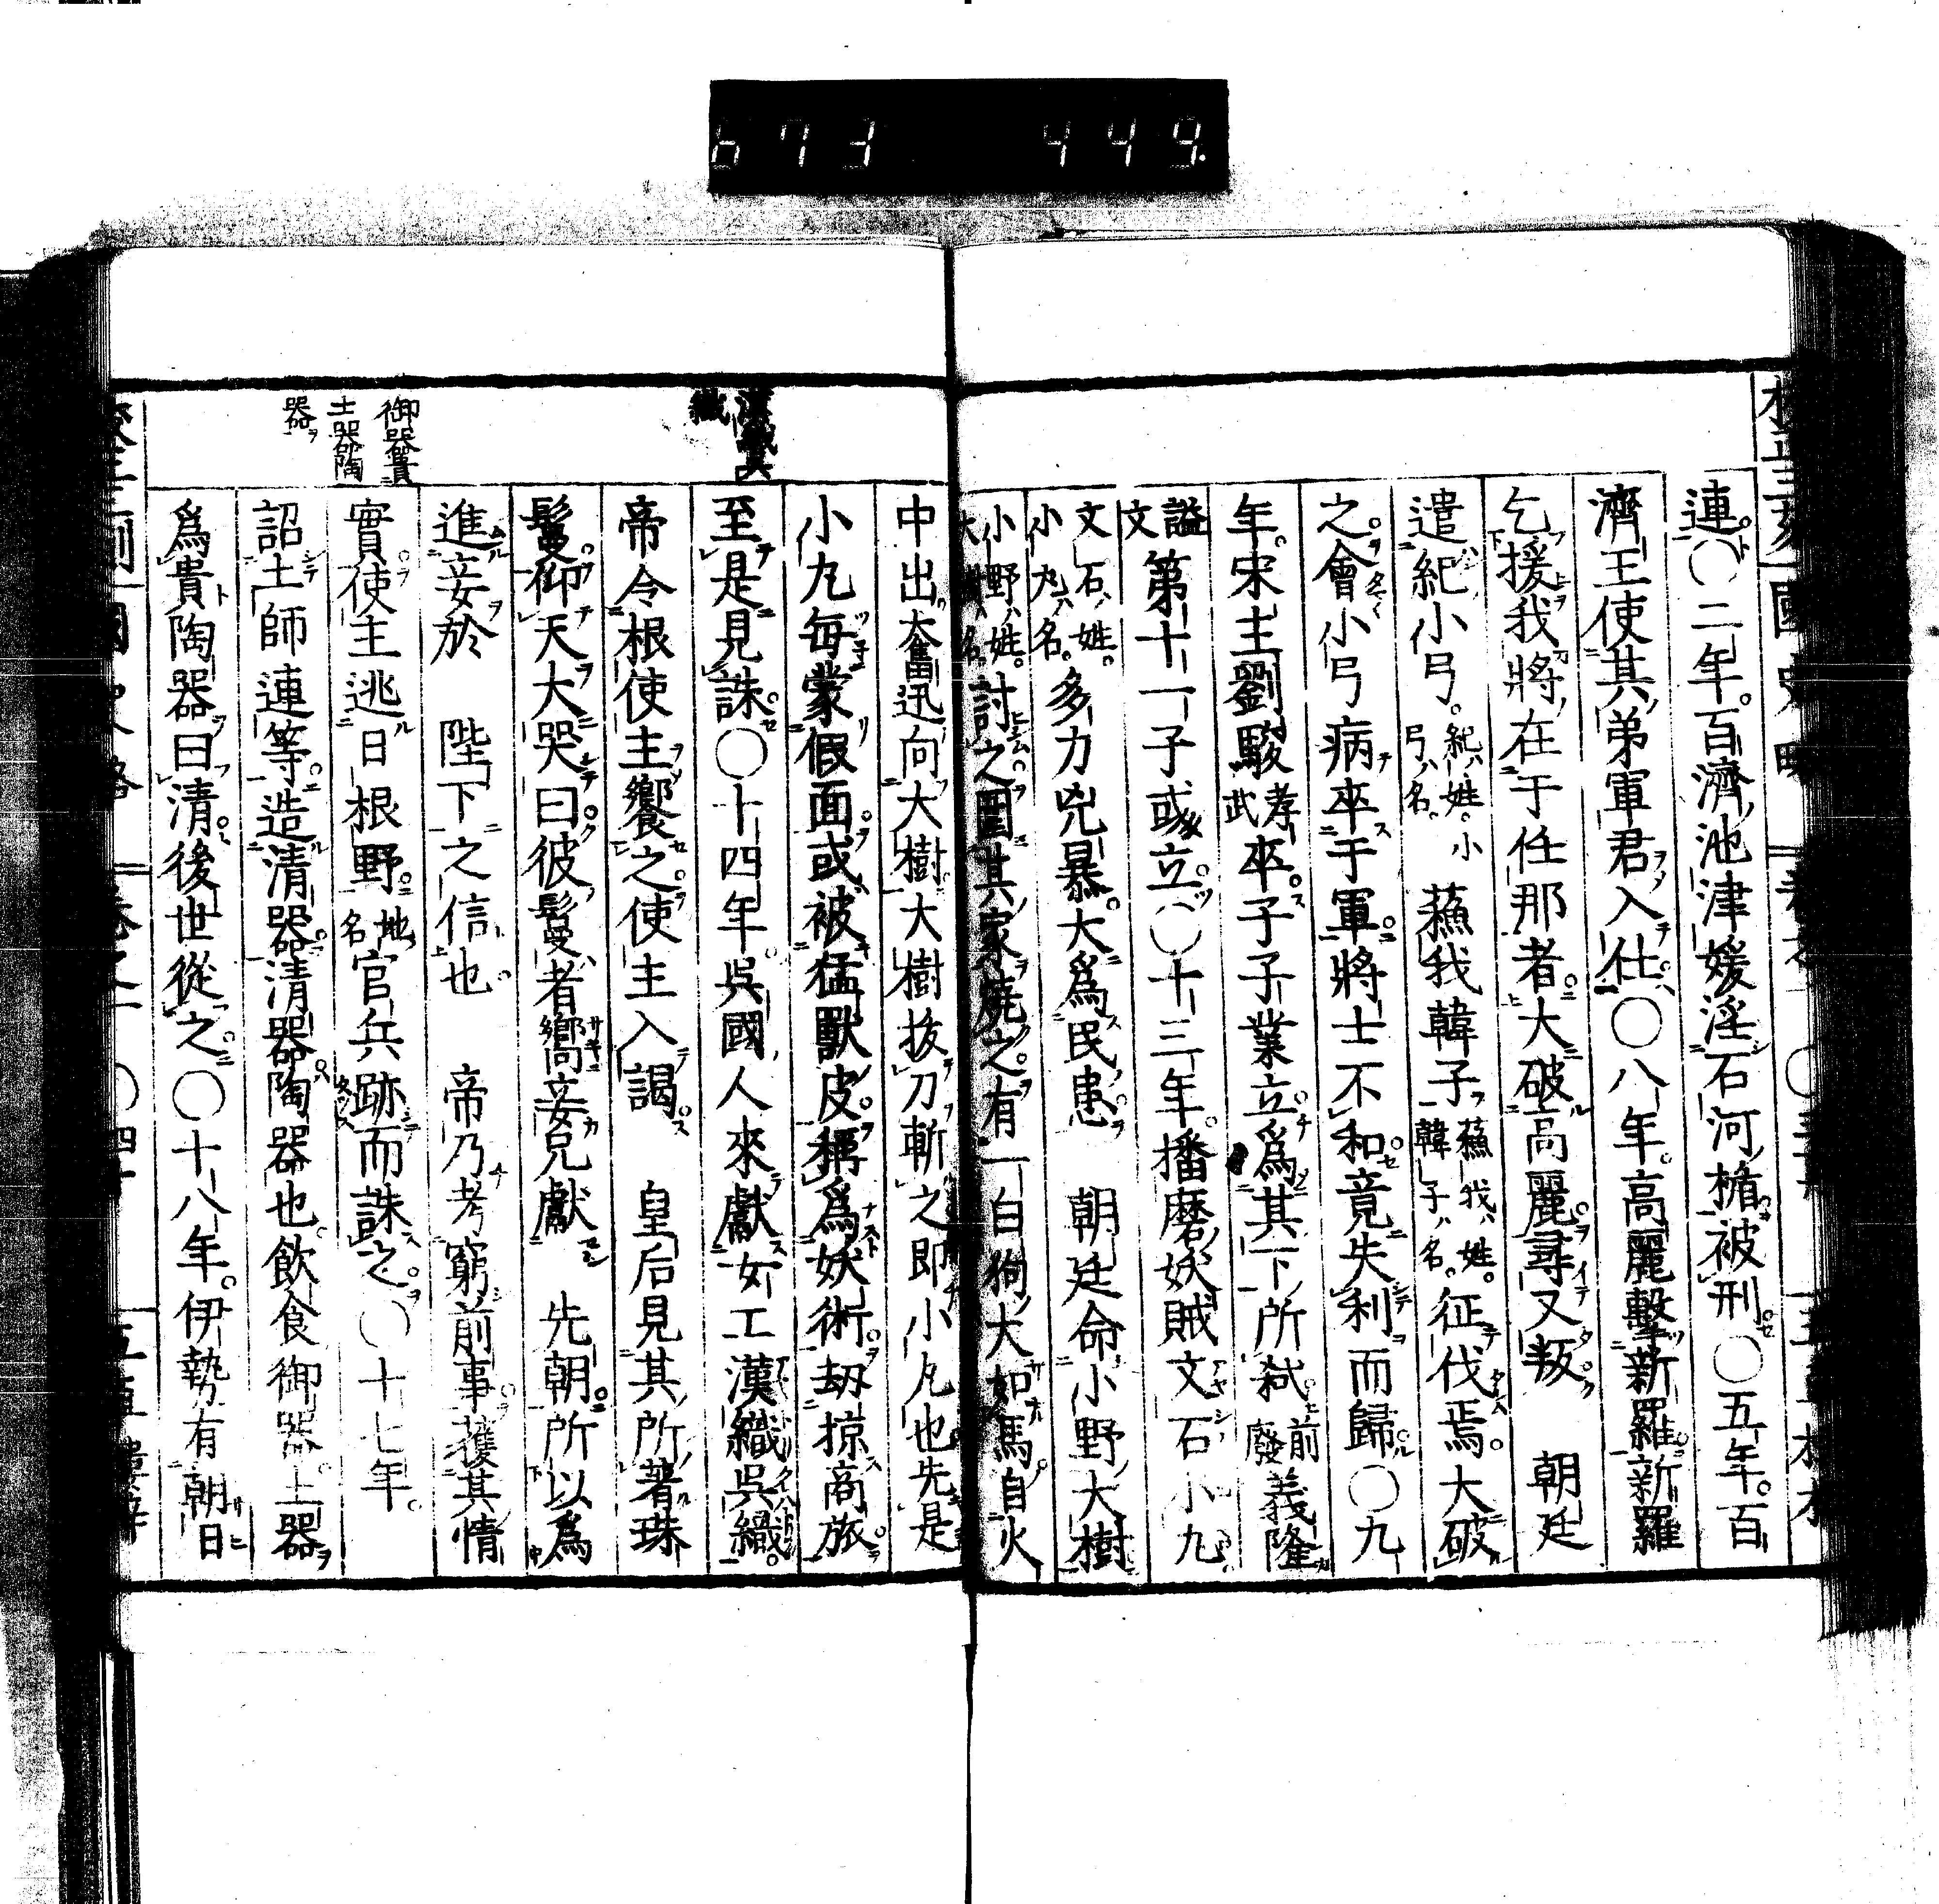 673 449.
連○二年百濟池津媛淫石河楯被刑○五年百
濟王使其弟軍君入仕○八年高麗擊新羅新羅
乞援我將在于任那者大破高麗尋又叛 朝廷
遣紀小弓紀ハ姓小弓ハ名蘓我韓子蘓我ハ姓韓子ハ名征伐焉大破
之會小弓病卒于軍將士不和竟失利而歸○九
年宋主劉駿孝武卒子子業立爲其下所弑前廢義隆
謚文第十一子或立○十三年播磨妖賊文石小丸
文石ハ姓小丸ハ名多力兇暴大爲民患 朝廷命小野大樹
小野ハ姓大樹ハ名討之圍其家燒之有一白狗大如馬自火
中出大奮迅向大樹大樹拔刀斬之即小丸也先是
小丸每蒙假面或被猛獸皮稱爲妖術劫掠商旅
至是見誅○十四年吳國人來獻女工漢織吳織
漢織吳織
帝令根使主饗之使主入謁 皇后見其所著珠
鬘仰天大哭曰彼鬘者嚮妾兄獻 先朝所以爲
進妾於 陛下之信也 帝乃考窮前事獲其情
實使主逃日根野地名官兵跡而誅之○十七年
詔土師連等造清器清器陶器也飮食御器土器
御器貴土器陶器ヲ
爲貴陶器曰清後世從之○十八年伊勢有朝日